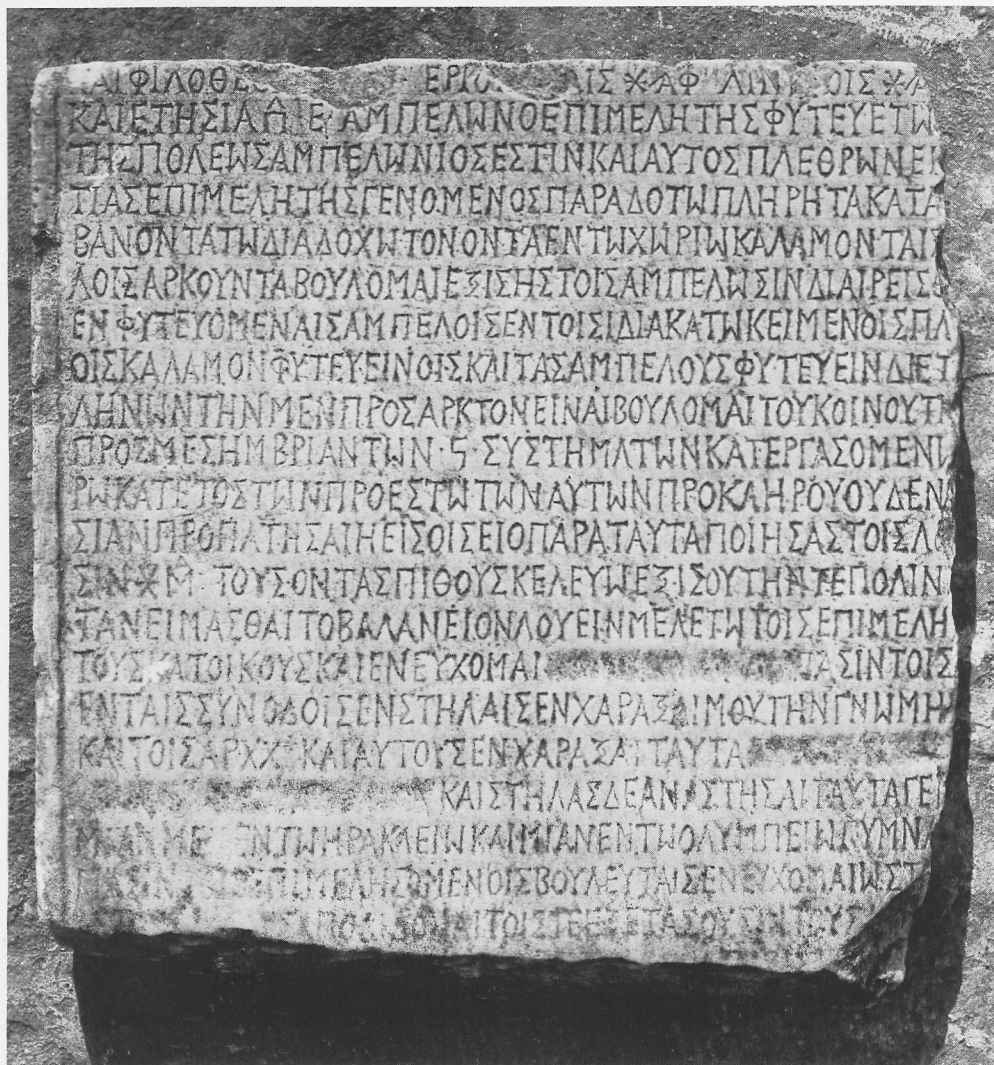 ΑΙΦΙΛΟΘΕ ΕΡΙ ΑΙΣ 𐆖 ΑΦ ΛΙΝ ΟΙΣ 𐆖 Α
ΚΑΙΕΤΗΣΙΑ ΙΕ ΑΜΠΕΛΩΝΟΕΠΙΜΕΛΗΤΗΣΦΥΤΕΥΕΤΩ
ΤΗΣΠΟΛΕΩΣΑΜΠΕΛΩΝΙΟΣΕΣΤΙΝΚΑΙΑΥΤΟΣΠΛΕΘΡΩΝΕΙΚ
ΤΙΑΣΕΠΙΜΕΛΗΤΗΣΓΕΝΟΜΕΝΟΣΠΑΡΑΔΟΤΩΠΛΗΡΗΤΑΚΑΤΑ
ΒΑΝΟΝΤΑΤΩΔΙΑΔΟΧΩΤΟΝΟΝΤΑΕΝΤΩΧΩΡΙΩΚΑΛΑΜΟΝΤΑΙΣ
ΛΟΙΣΑΡΚΟΥΝΤΑΒΟΥΛΟΜΑΙΕΞΙΣΗΣΤΟΙΣΑΜΠΕΛΩΣΙΝΔΙΑΙΡΕΙΣΘ
ΕΝΦΥΤΕΥΟΜΕΝΑΙΣΑΜΠΕΛΟΙΣΕΝΤΟΙΣΙΔΙΑΚΑΤΩΚΕΙΜΕΝΟΙΣΠΛ
ΟΙΣΚΑΛΑΜΟΝΦΥΤΕΥΕΙΝΟΙΣΚΑΙΤΑΣΑΜΠΕΛΟΥΣΦΥΤΕΥΕΙΝΔΙΕΤ
ΛΗΝΩΝΤΗΝΜΕΝΠΡΟΣΑΡΚΤΟΝΕΙΝΑΙΒΟΥΛΟΜΑΙΤΟΥΚΟΙΝΟΥΤΗ
ΠΡΟΣΜΕΣΗΜΒΡΙΑΝΤΩΝ·Ϛ·ΣΥΣΤΗΜΑΤΩΝΚΑΤΕΡΓΑΣΟΜΕΝΩ
ΡΩΚΑΤΕΤΟΣΤΩΝΠΡΟΕΣΤΩΤΩΝΑΥΤΩΝΠΡΟΚΛΗΡΟΥΟΥΔΕΝΑ
ΣΙΑΝΠΡΟΠΑΤΗΣΑΙΗΕΙΣΟΙΣΕΙΟΠΑΡΑΤΑΥΤΑΠΟΙΗΣΑΣΤΟΙΣΛΟ
ΣΙΝ 𐆖 Μ ΤΟΥΣΟΝΤΑΣΠΙΘΟΥΣΚΕΛΕΥΩΕΞΙΣΟΥΤΗΝΤΕΠΟΛΙΝ
ΤΑΝΕΙΜΑΣΘΑΙΤΟΒΑΛΑΝΕΙΟΝΛΟΥΕΙΝΜΕΛΕΤΩΤΟΙΣΕΠΙΜΕΛΗ
ΤΟΥΣΚΑΤΟΙΚΟΥΣΚΑΙΕΝΕΥΧΟΜΑΙ ΤΑΣΙΝΤΟΙΣ
ΕΝΤΑΙΣΣΥΝΟΔΟΙΣΕΝΣΤΗΛΑΙΣΕΝΧΑΡΑΞΑΙΜΟΥΤΗΝΓΝΩΜΗΝ
ΚΑΙΤΟΙΣΑΡΧΧ ΚΑΙΑΥΤΟΥΣΕΝΧΑΡΑΞΑΙΤΑΥΤΑ
ΚΑΙΣΤΗΛΑΣΔΕΑΝΑΣΤΗΣΑΙΤΑΥΤΑΓΕ
ΜΕ ΕΝΤΩΗΡΑΚΛΕΙΩΚΑΙΜΙΑΝΕΝΤΩΟΛΥΜΠΕΙΩΓΥΜΝΑ
ΕΠΙΜΕΛΗΣΟΜΕΝΟΙΣΒΟΥΛΕΥΤΑΙΣΕΝΕΥΧΟΜΑΙΩΣΤ
ΑΠΟΔΙΔΟΝΑΙΤΟΙΣΤΕΕΞΕΤΑΣΟΥΣΙΝΤΟΥΣ